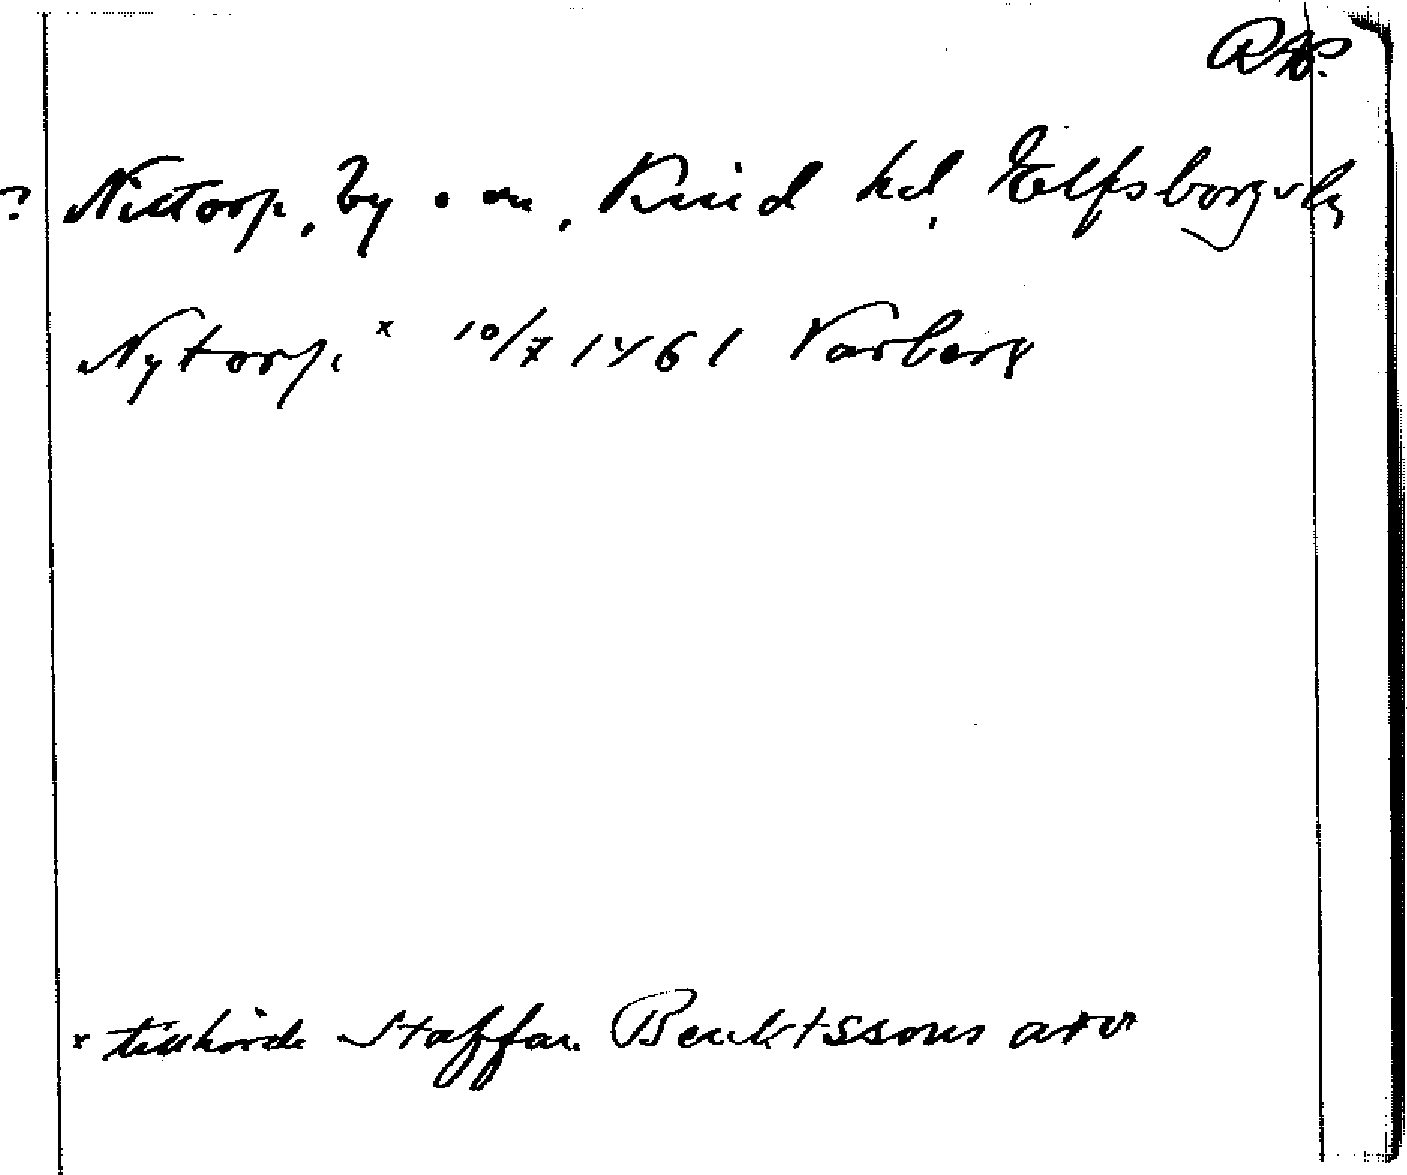 RAp.
? Nittorp, by o sn, Kind hd, Elfsborgs l.
Nytorp x 10/7 1461 Varberg
x tillhörde Staffan Benktssons arv